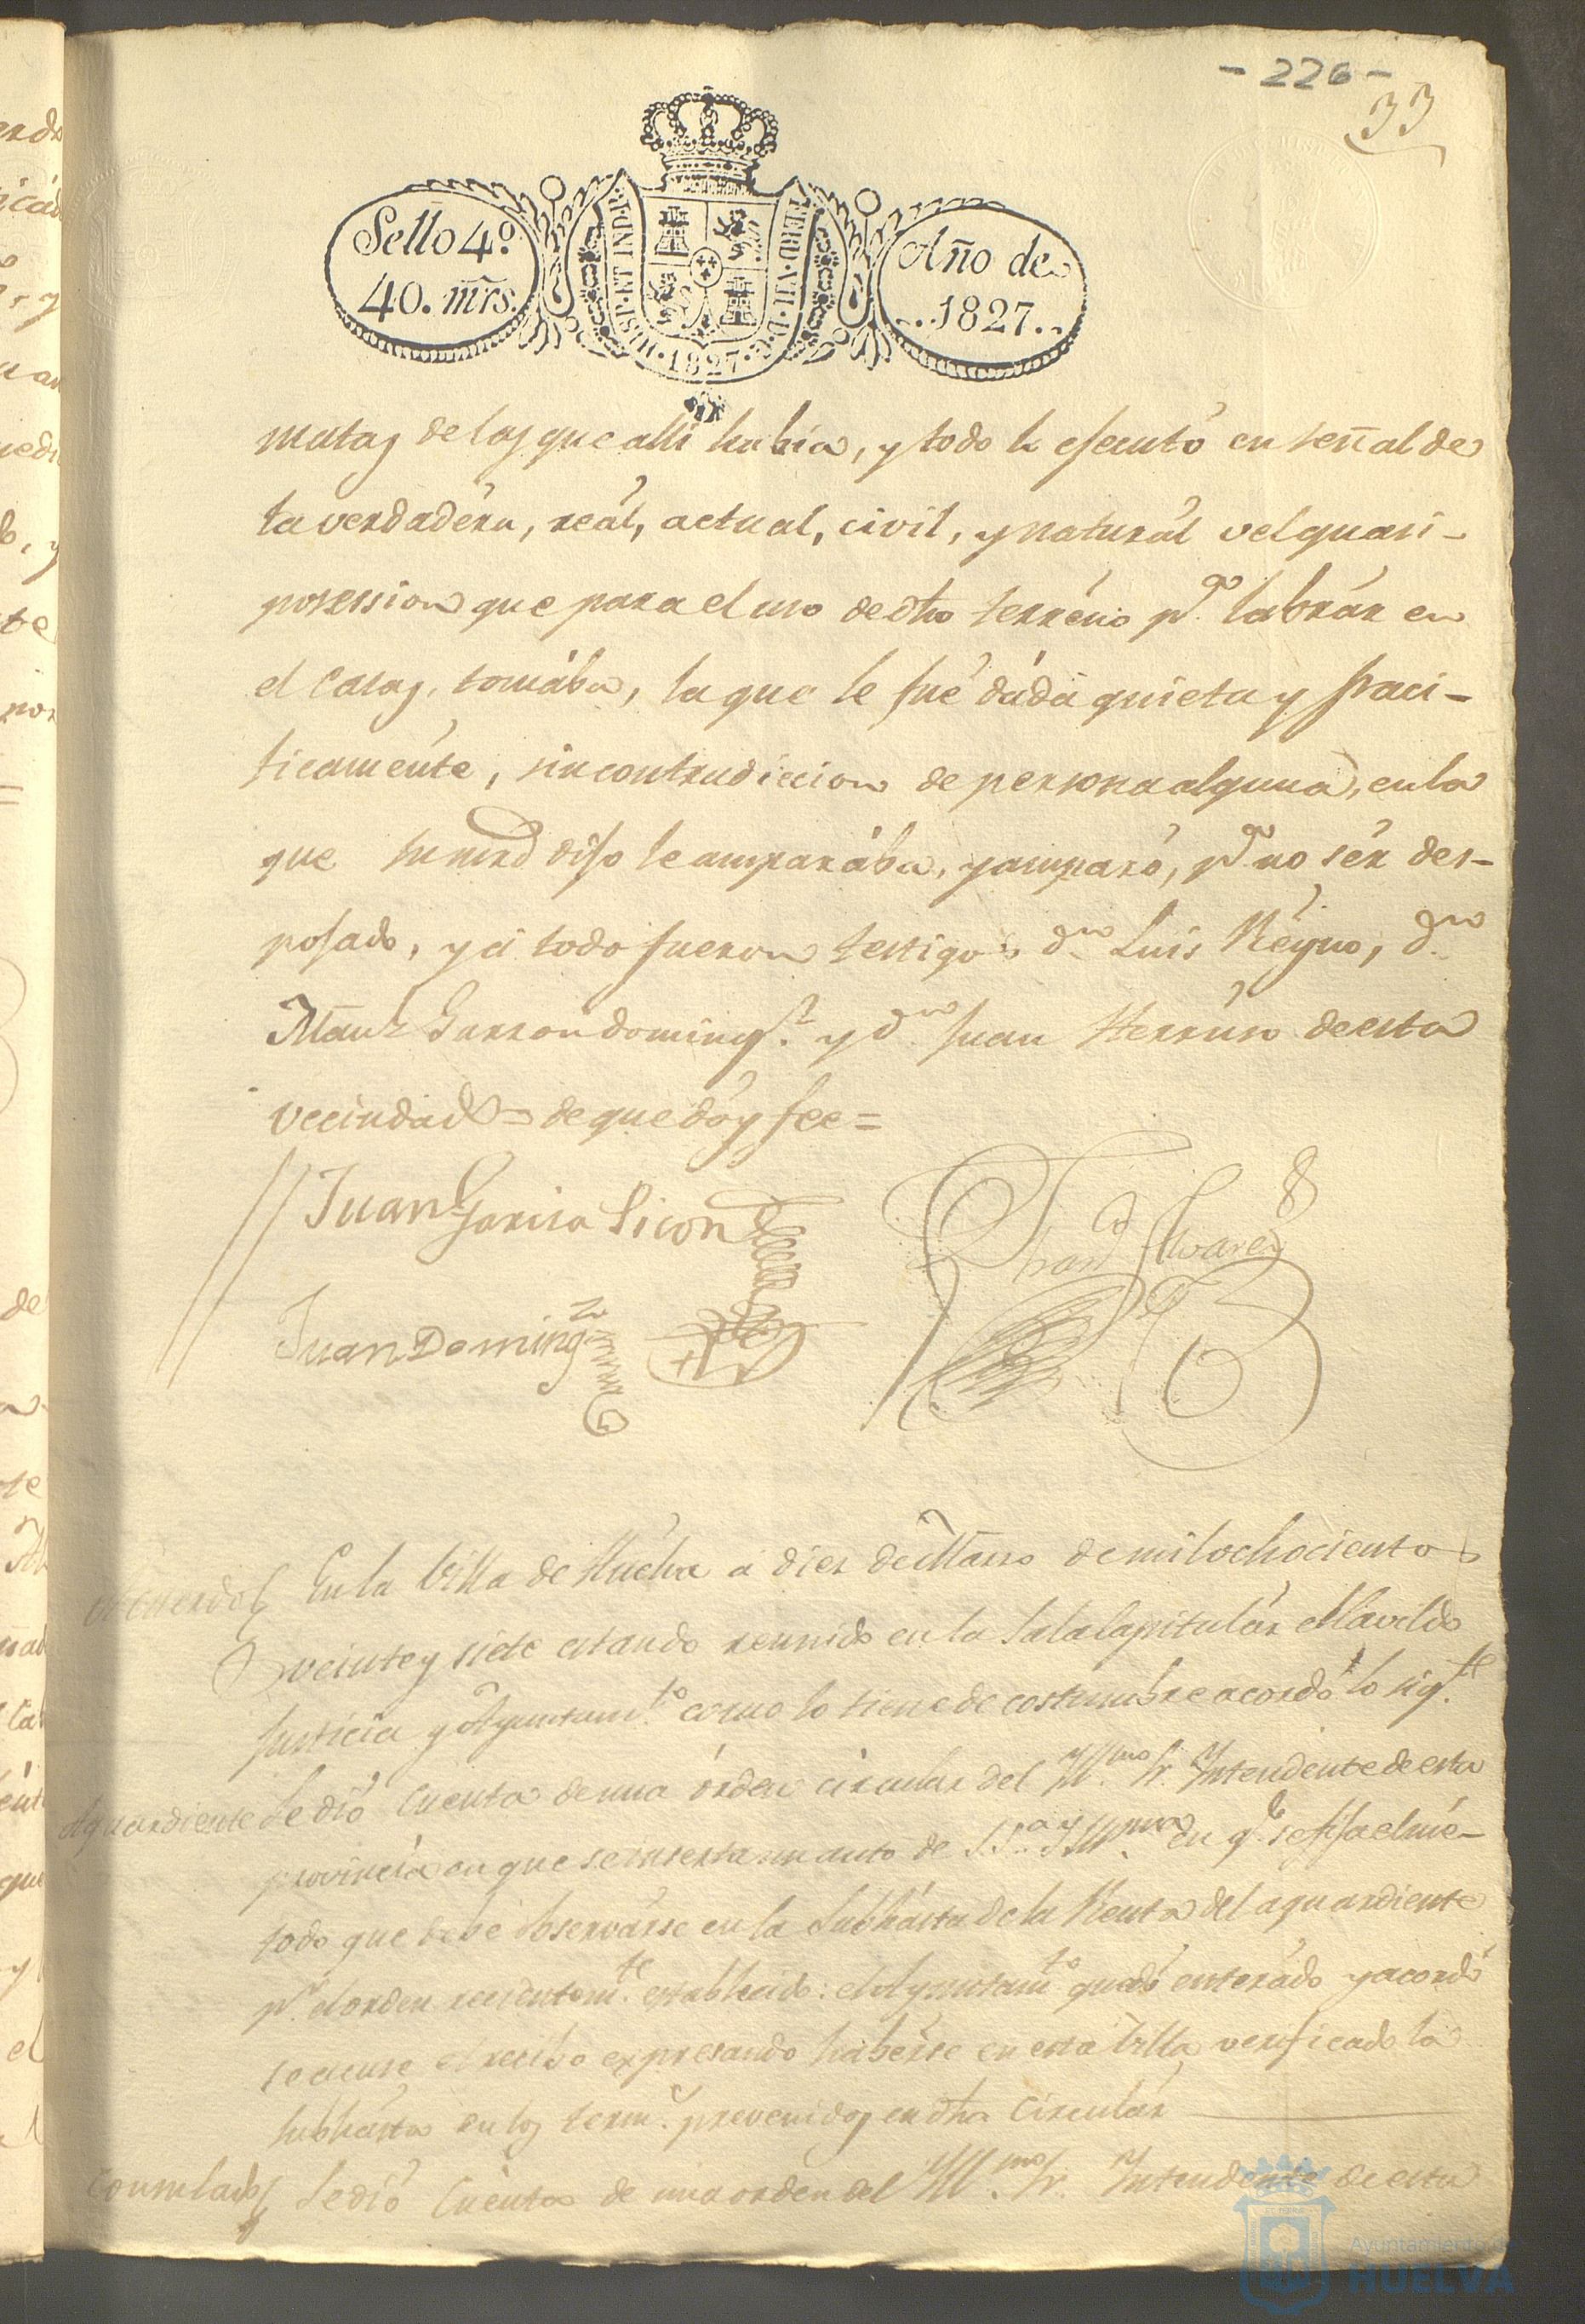 - 226 -
33
Sello 4º
40. mr̃s.
HISP. ET IND. R.
FERD. VII. D. G.
1827
Año de
1827.
matas de las que alli habia, y todo lo ejecutó en señal de
la verdadéra, reál, actual, civil, y naturál vel quasi-
posession que para el uso de dho terréno pª labrár en
el Casas, tomába, la que le fué dáda quieta y paci-
ficamente, sin contradiccion de persona alguna, en la
que su mrd dijo le amparába, y amparó, pª no sér des-
pojado, y á todo fueron testigos dn Luis Réyno, dn
Manl Garzon domingz y dn Juan Herréro de esta
vecindad = de que dóy fee =
Juan Garsia Picon
Juan Doming
Alvarez
Acuerdo
En la Villa de Huelva á diez de Marzo de mil ochocientos
veinte y siete estando reunido en la Sala Capitulár el Cavildo
Justicia y Ayuntamto como lo tiene de costumbre acordó lo sigte
Aguardiente
Se dió Cuenta de una órden circular del Illmo Sr. Intendente de esta
provincia en que se inserta un auto de S.Sª Illma en q.e se fija el mé-
todo que debe observárse en la Subhásta de la Renta del aguardiente
pr el orden recientemte establecido: el Ayuntamto quedó enterádo y acordó
se acuse el recibo expresando habérse en esta Villa verificado la
subhásta en los term.s prevenidos en dha Circulár
Consulado
Se dió Cuenta de una orden del Illmo Sr. Intendente de esta
Ayuntamiento de
HUELVA